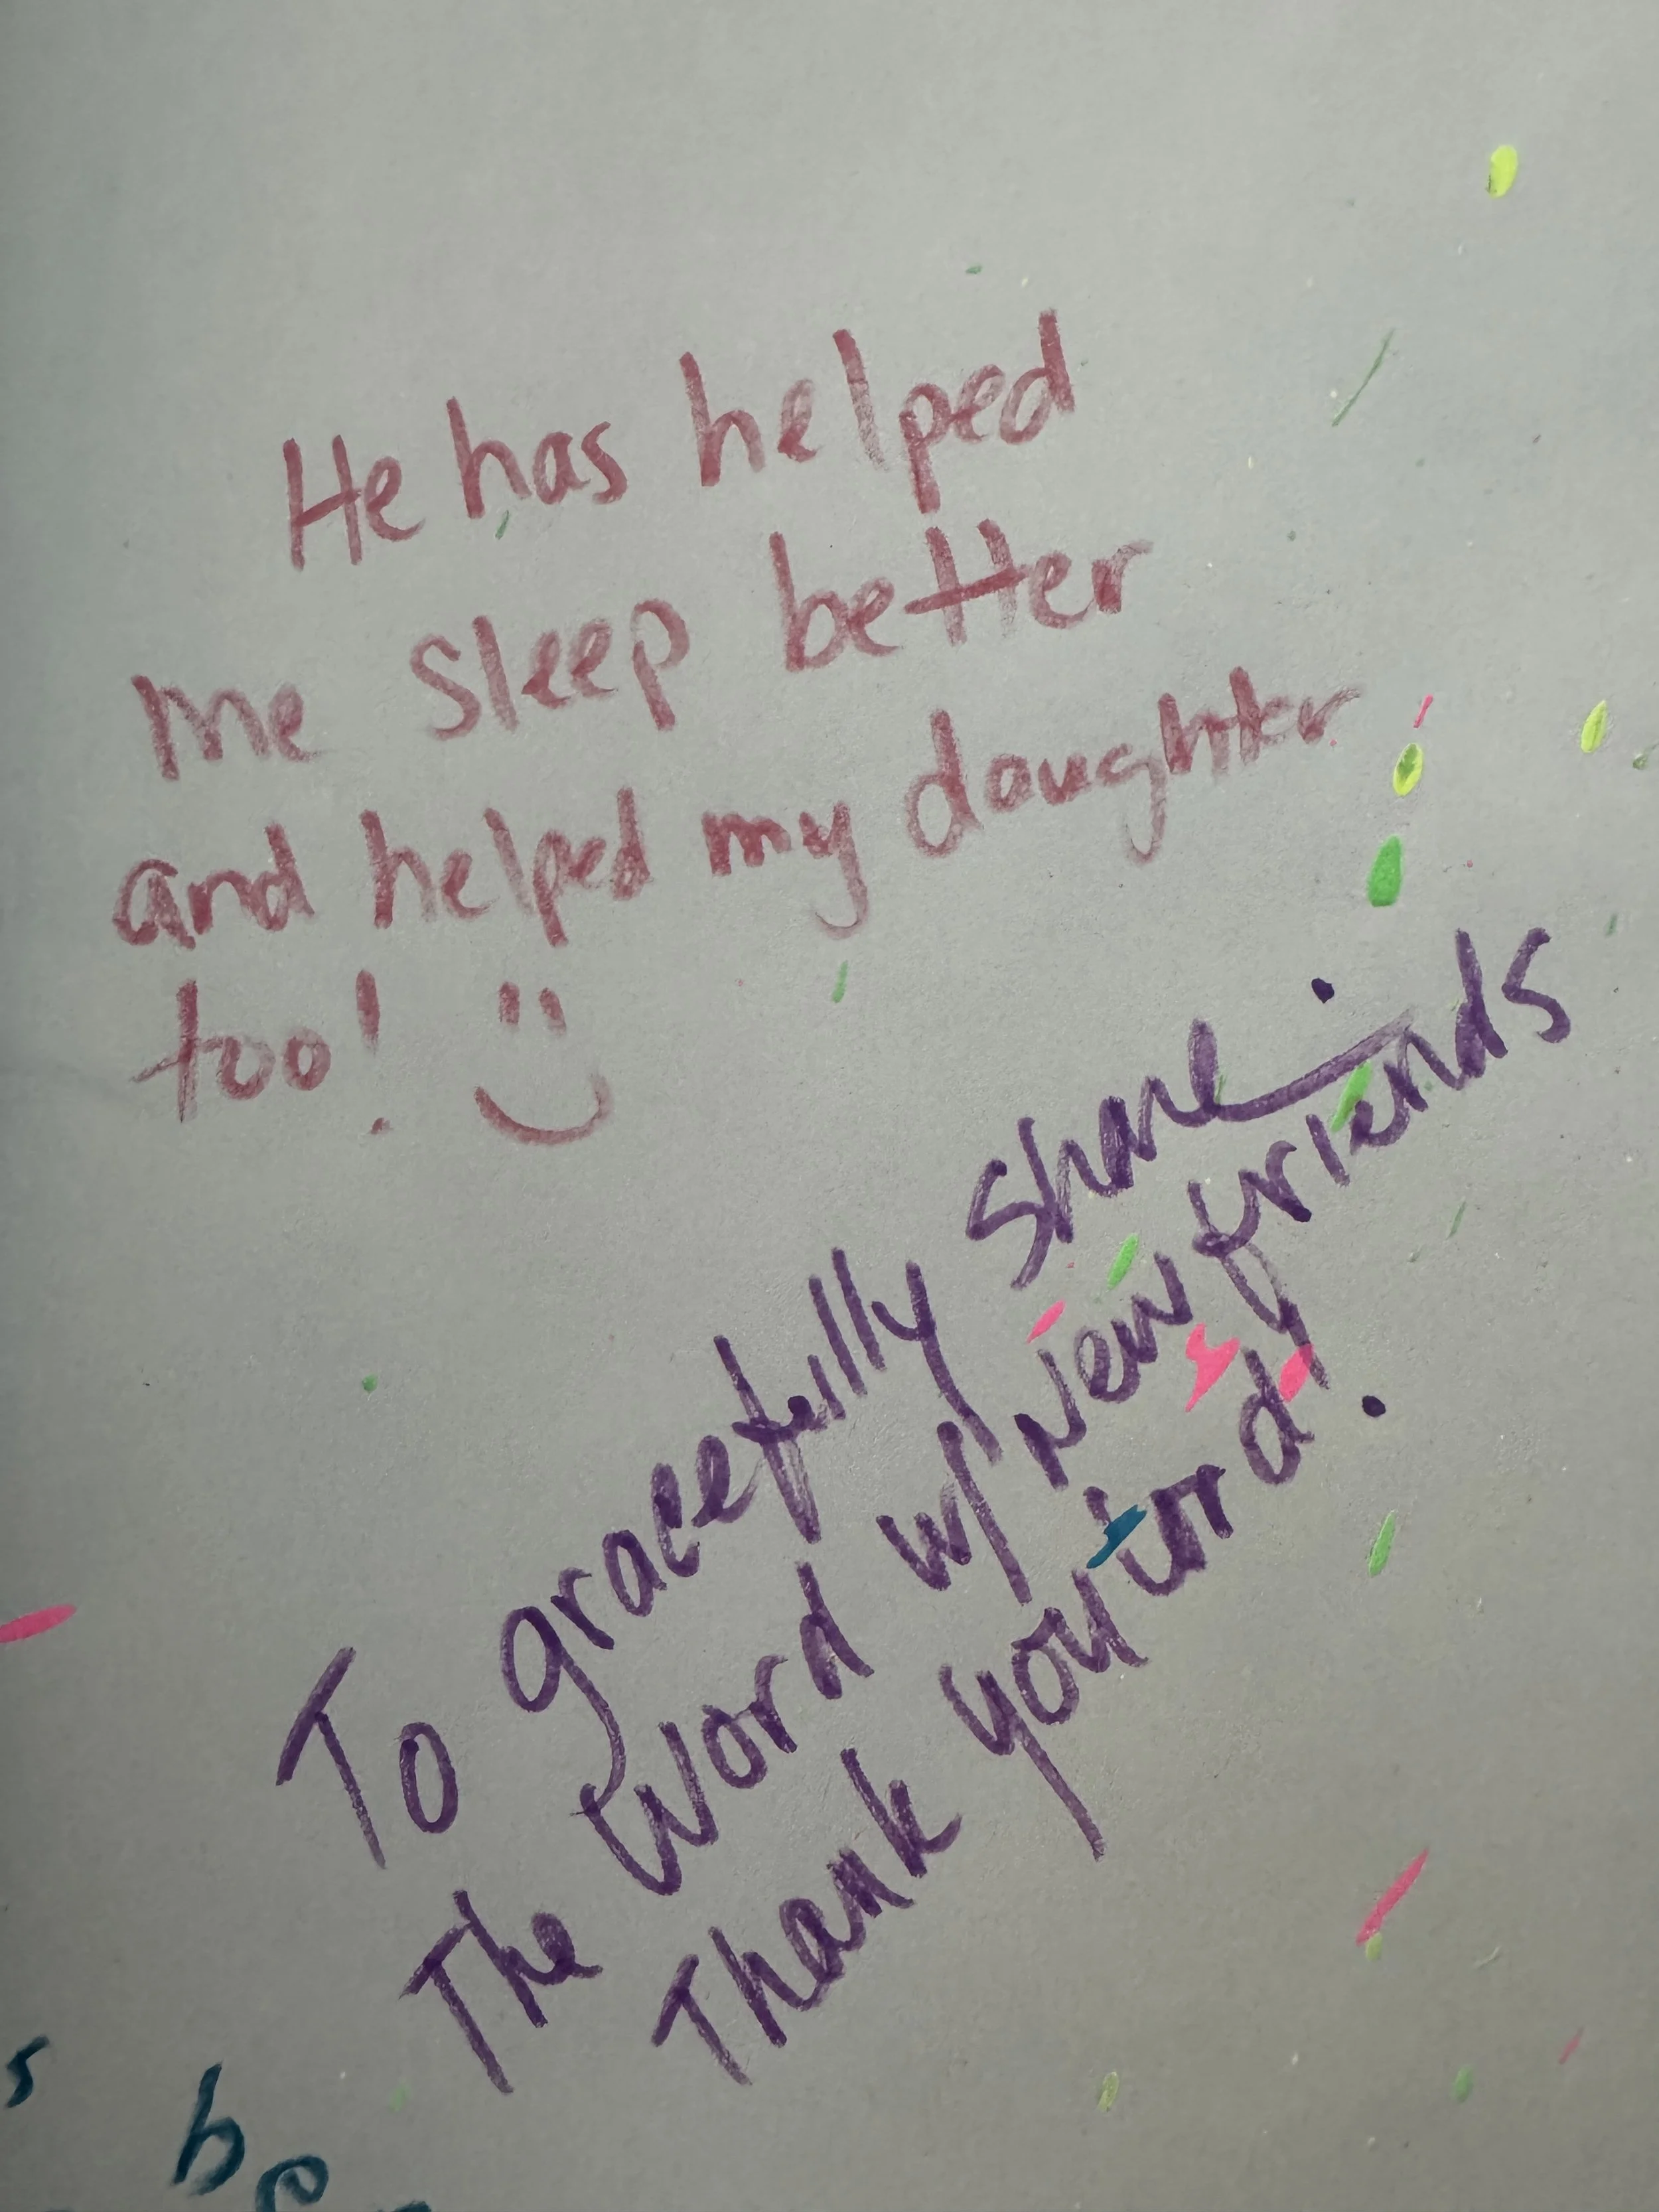 He has helped
me sleep better
and helped my daughter
too! :)
To gracefully share
The Word w/ New friends
Thank you Lord!
s be